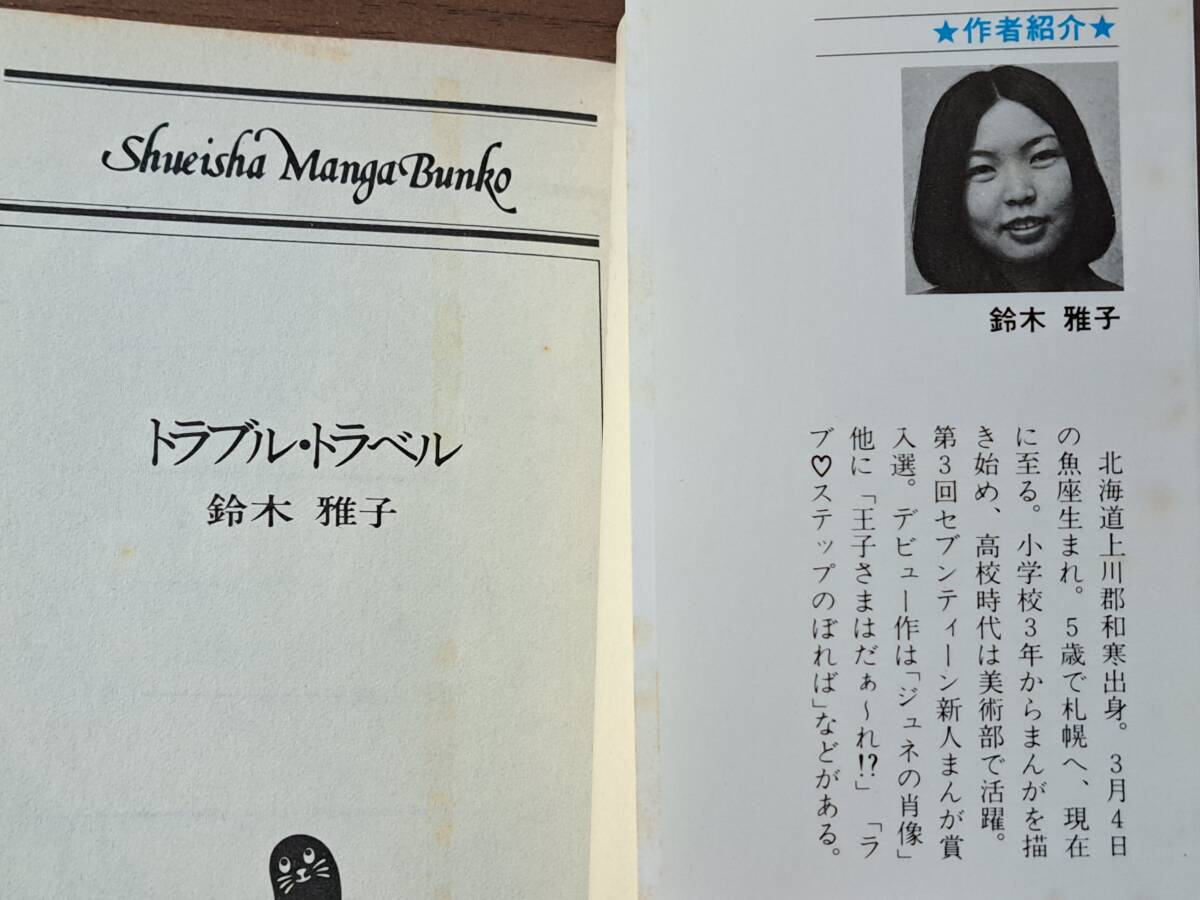 Shueisha Manga Bunko
トラブル・トラベル
鈴木 雅子
★作者紹介★
鈴木 雅子
北海道上川郡和寒出身。3月4日
の魚座生まれ。5歳で札幌へ、現在
に至る。小学校3年からまんがを描
き始め、高校時代は美術部で活躍。
第3回セブンティーン新人まんが賞
入選。デビュー作は「ジュネの肖像」
他に「王子さまはだぁ〜れ!?」「ラ
ブ♡ステップのぼれば」などがある。